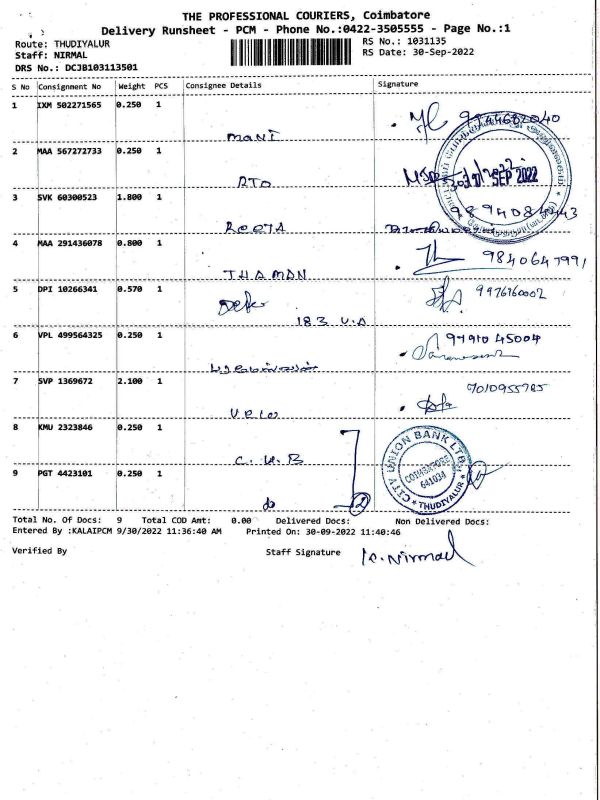 THE PROFESSIONAL COURIERS, Coimbatore
Delivery Runsheet - PCM - Phone No.:0422-3505555 - Page No.:1
Route: THUDIYALUR
RS No.: 1031135
Staff: NIRMAL
RS Date: 30-Sep-2022
DRS No.: DCJB103113501
S No Consignment No Weight PCS Consignee Details Signature
1 IXM 502271565 0.250 1
MANI
2 MAA 567272733 0.250 1
RTO
SEP 2022
3 SVK 60300523 1.800 1
ROOJA
4 MAA 291436078 0.800 1
THAMAN 9840647991
5 DPI 10266341 0.570 1
9976760002
183 V.A
6 VPL 499564325 0.250 1
97910 45004
7 SVP 1369672 2.100 1
7010955785
8 KMU 2323846 0.250 1
C.U.B
CITY UNION BANK LTD.
COIMBATORE
641034
* THUDIYALUR *
9 PGT 4423101 0.250 1
2
Total No. Of Docs: 9 Total COD Amt: 0.00 Delivered Docs: Non Delivered Docs:
Entered By :KALAIPCM 9/30/2022 11:36:40 AM Printed On: 30-09-2022 11:40:46
Verified By Staff Signature K. Nirmal